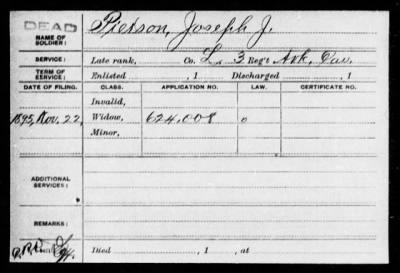 DEAD
NAME OF SOLDIER: Pierson, Joseph J.
SERVICE: Late rank, Co. L, 3 Reg't Ark. Cav.
TERM OF SERVICE: Enlisted , 1 Discharged , 1
DATE OF FILING. CLASS. APPLICATION NO. LAW. CERTIFICATE NO.
Invalid,
1895, Nov. 22, Widow, 624,008
Minor,
ADDITIONAL SERVICES:
REMARKS:
Died , 1 , at